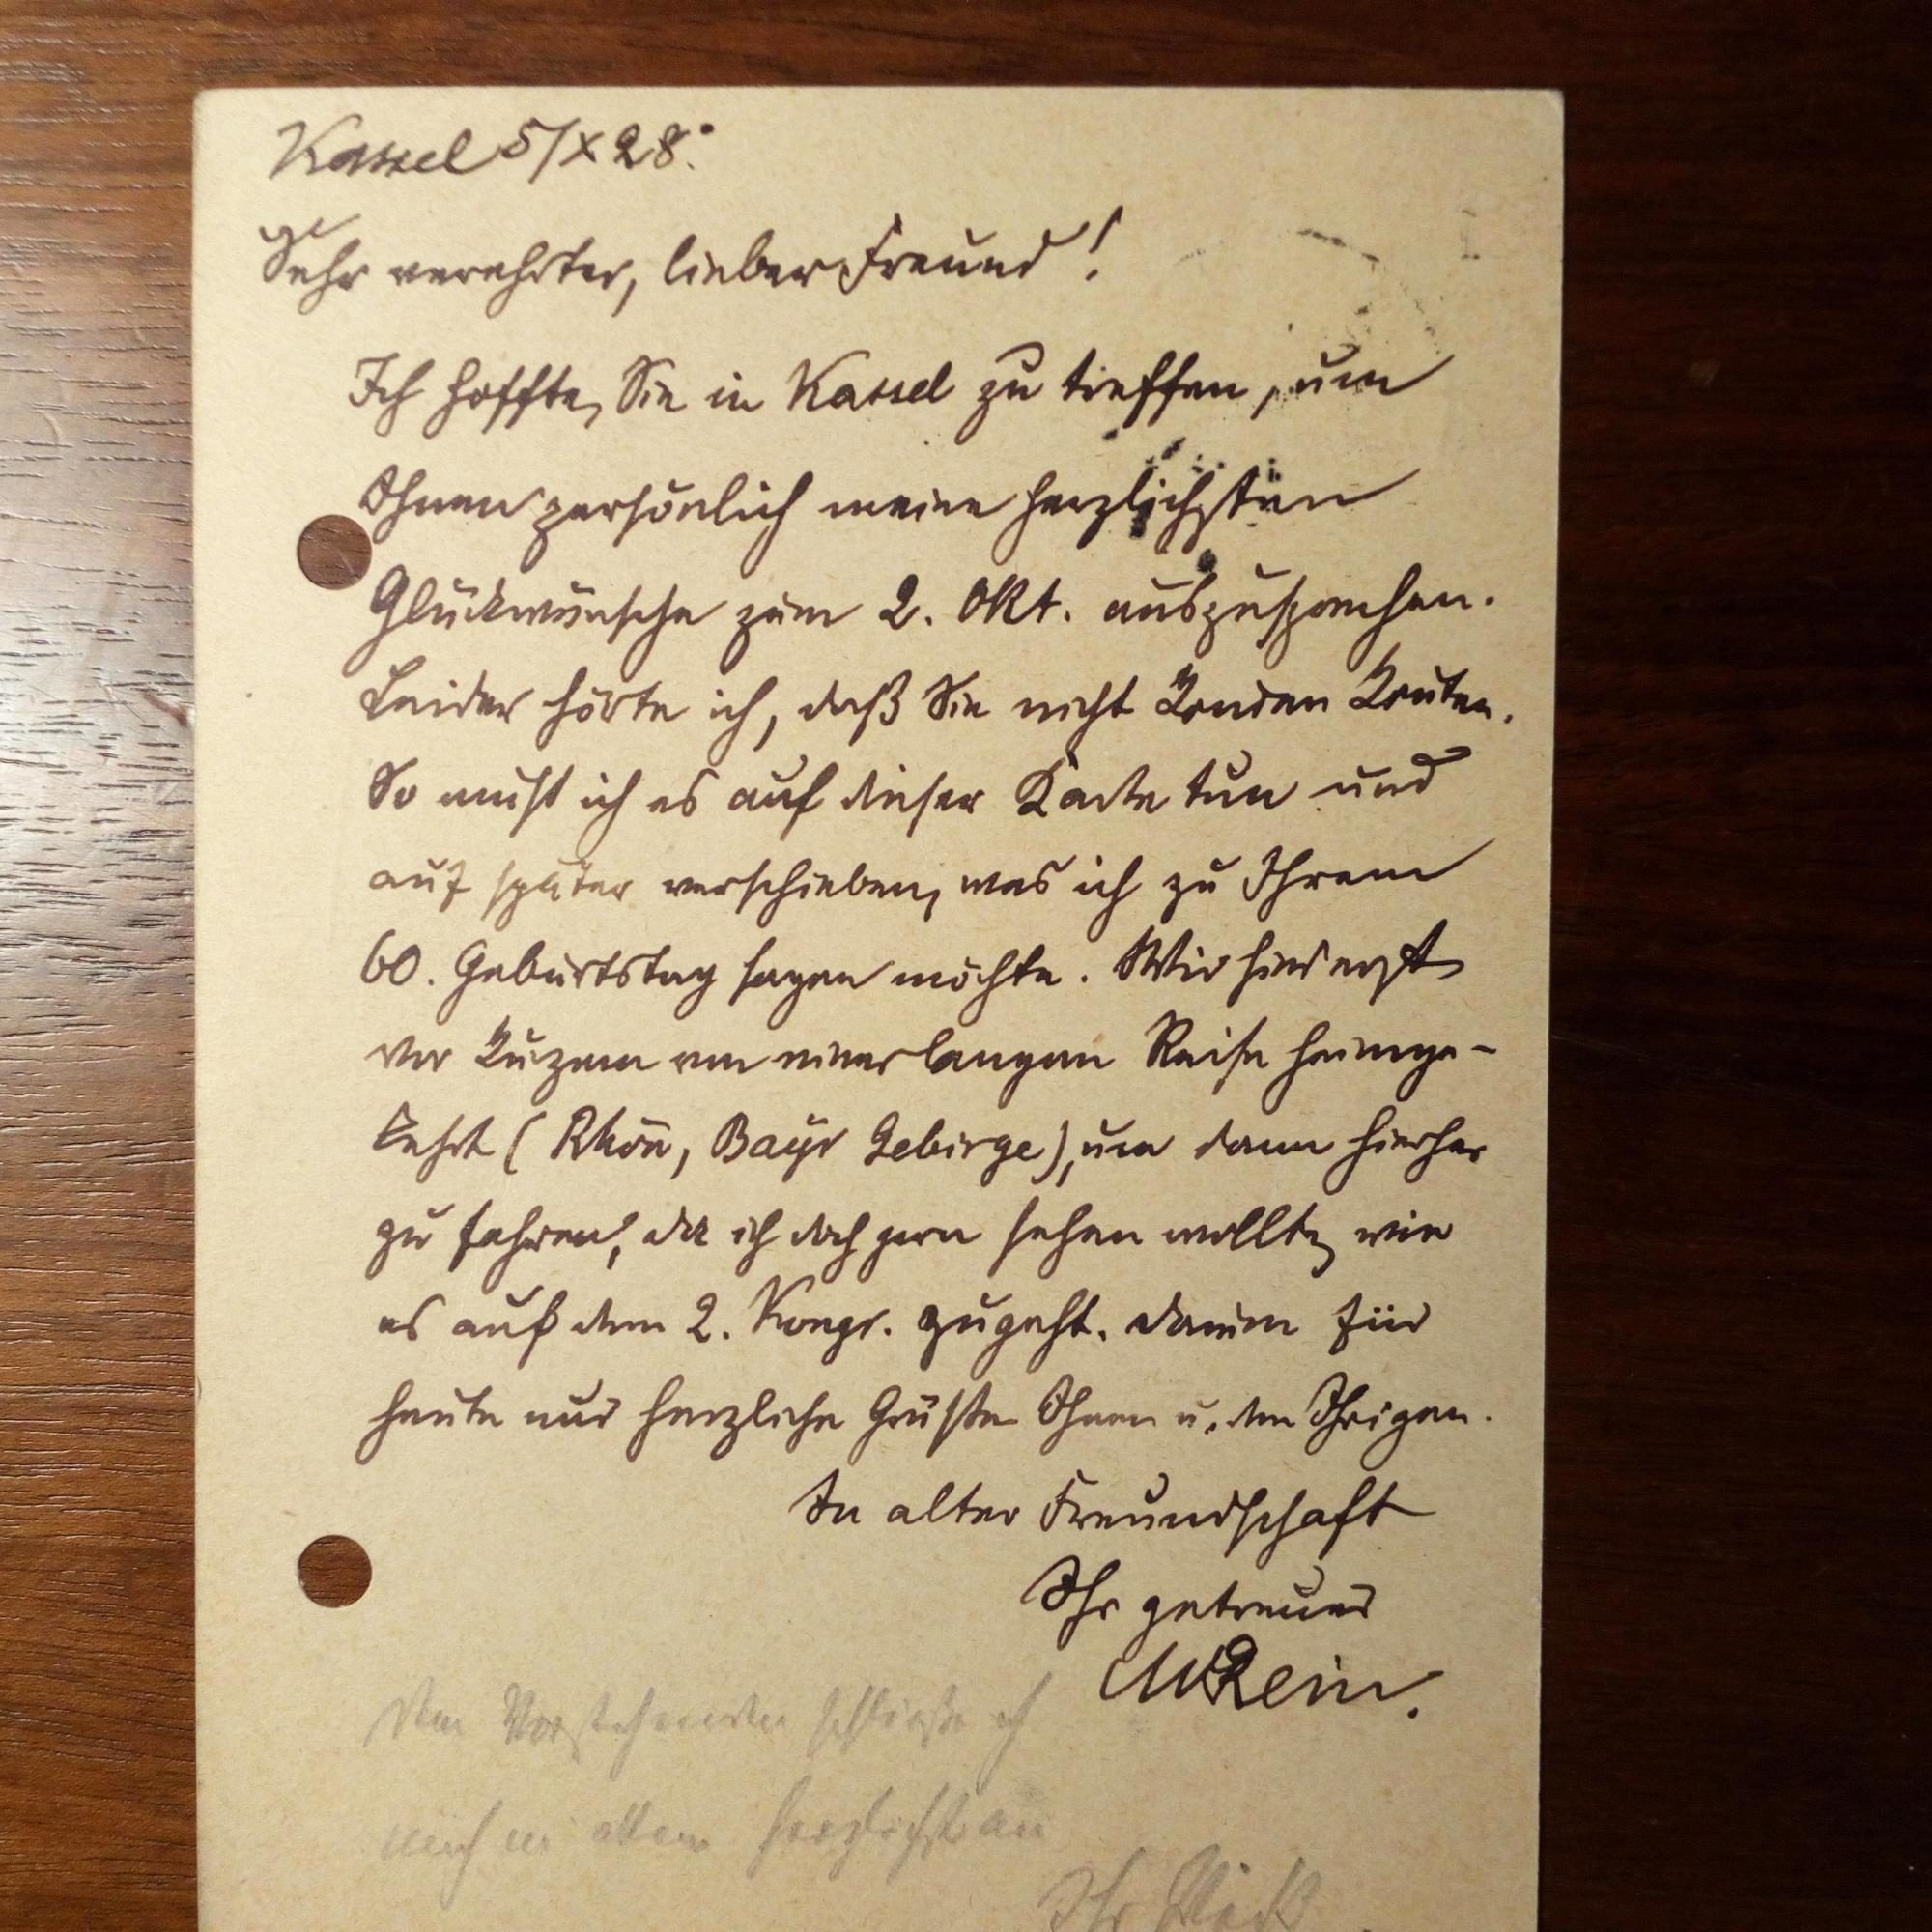 Kassel 5/X 28.
Sehr verehrter, lieber Freund!
Ich hoffte, Sie in Kassel zu treffen, um
Ihnen persönlich meine herzlichsten
Glückwünsche zum 2. Okt. auszusprechen.
Leider hörte ich, daß Sie nicht kommen konnten.
So muß ich es auf dieser Karte tun und
auf später verschieben, was ich zu Ihrem
60. Geburtstag sagen möchte. Wir sind erst
vor kurzem von einer langen Reise heimge-
kehrt (Rhön, Bayr Gebirge), um dann hierher
zu fahren, da ich doch gern sehen wollte, wie
es auf dem 2. Kongr. zugeht. Darum für
heute nur herzliche Grüße Ihnen u. den Ihrigen.
In alter Freundschaft
Ihr getreuer
Rein.
Dem Vorstehenden schließe ich
mich in allem herzlichst an
Ihr